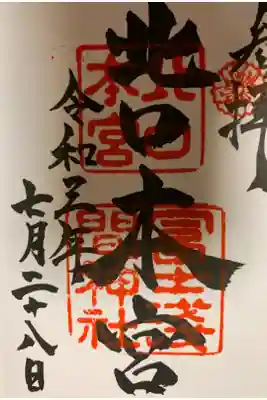 奉拝
北口本宮
令和年
七月二十八日
北口
本宮
冨士浅
間神社